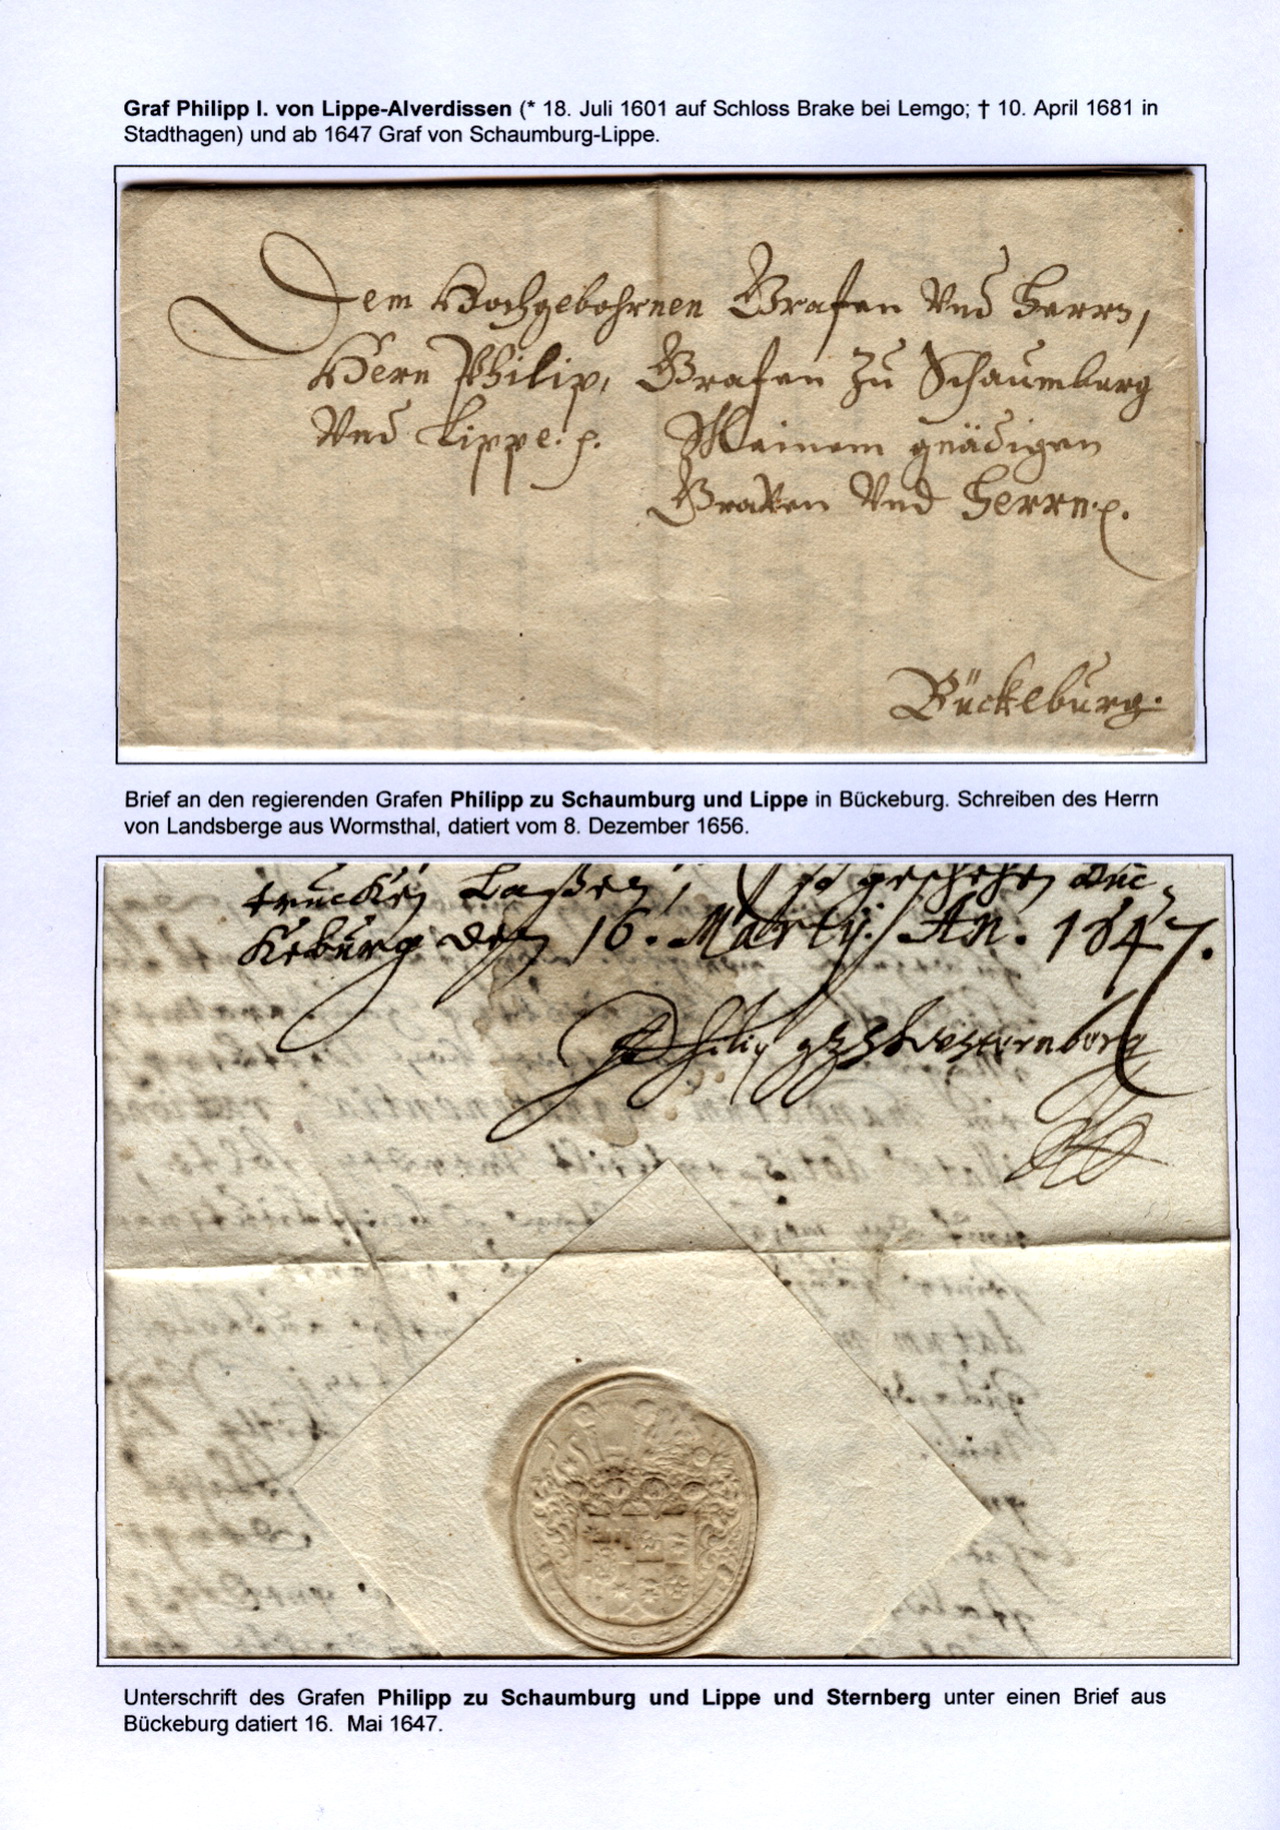 Graf Philipp I. von Lippe-Alverdissen (* 18. Juli 1601 auf Schloss Brake bei Lemgo; † 10. April 1681 in
Stadthagen) und ab 1647 Graf von Schaumburg-Lippe.
Dem Hochgebohrnen Grafen Und Herrn,
Hern Philip, Grafen zu Schaumburg
Und Lippe. p. Meinem gnädigen
Graven Und Herren. p.
Bückeburg.
Brief an den regierenden Grafen Philipp zu Schaumburg und Lippe in Bückeburg. Schreiben des Herrn
von Landsberge aus Wormsthal, datiert vom 8. Dezember 1656.
trucken Laßen, So geschehen Buc-
keburg den 16. Martij. An. 1647.
Philip
Unterschrift des Grafen Philipp zu Schaumburg und Lippe und Sternberg unter einen Brief aus
Bückeburg datiert 16. Mai 1647.